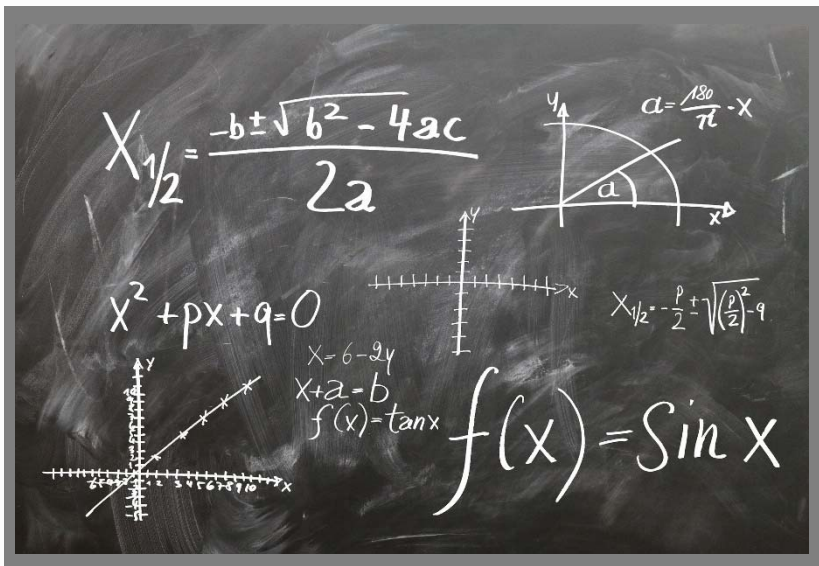 X1/2 = -b ± √b² - 4ac / 2a
y
a = 180/π · x
a
x
y
x
x² + px + q = 0
X1/2 = - p/2 ± √(p/2)² - q
x = 6 - 2y
x + a = b
f(x) = tan x
f(x) = Sin x
y
x
1 2 3 4 5 6 7 8 9 10